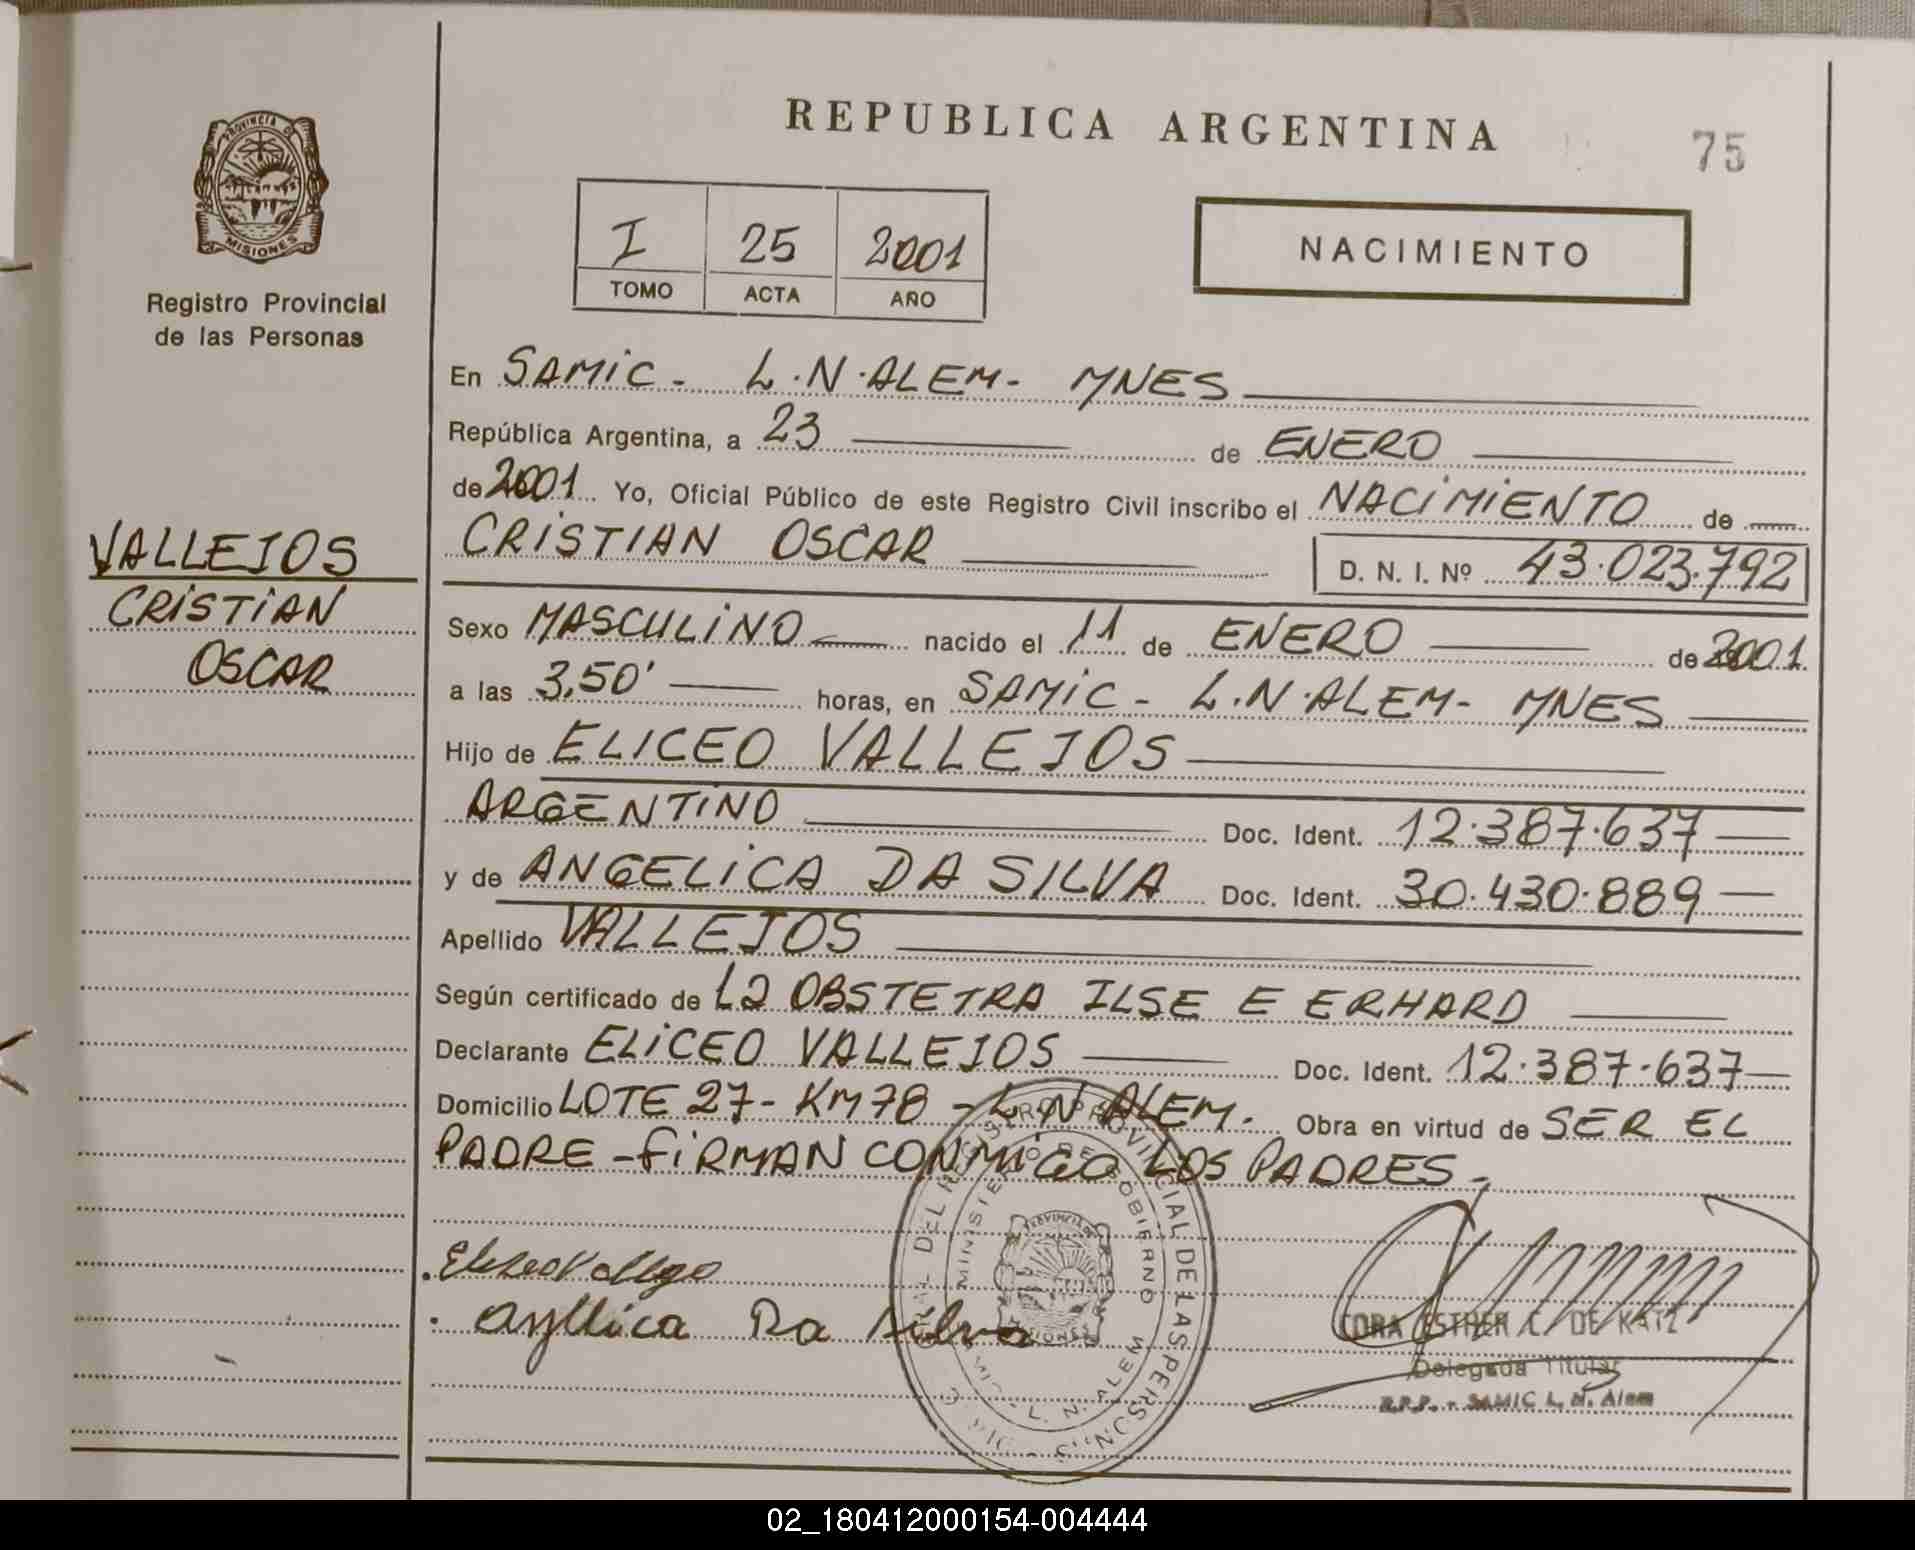 REPUBLICA ARGENTINA
75
PROVINCIA DE
MISIONES
Registro Provincial
de las Personas
I 25 2001
TOMO ACTA AÑO
NACIMIENTO
VALLEJOS
CRISTIAN
OSCAR
En SAMIC - L.N.ALEM- MNES
República Argentina, a 23 de ENERO
de 2001 Yo, Oficial Público de este Registro Civil inscribo el NACIMIENTO de
CRISTIAN OSCAR D. N. I. Nº 43.023.792
Sexo MASCULINO nacido el 11 de ENERO de 2001
a las 3,50' horas, en SAMIC - L.N.ALEM- MNES
Hijo de ELICEO VALLEJOS
ARGENTINO Doc. Ident. 12.387.637
y de ANGELICA DA SILVA Doc. Ident. 30.430.889
Apellido VALLEJOS
Según certificado de La OBSTETRA ILSE E ERHARD
Declarante ELICEO VALLEJOS Doc. Ident. 12.387.637
Domicilio LOTE 27- KM78 - L.N ALEM. Obra en virtud de SER EL
PADRE - FIRMAN CONMIGO LOS PADRES -
DEL REGISTRO PROVINCIAL DE LAS PERSONAS
MINISTERIO DE GOBIERNO
L. N. ALEM
Da Silva
CORA ESTHER C. DE KATZ
Delegada Titular
R.P.P. - SAMIC L. N. Alem
02_180412000154-004444